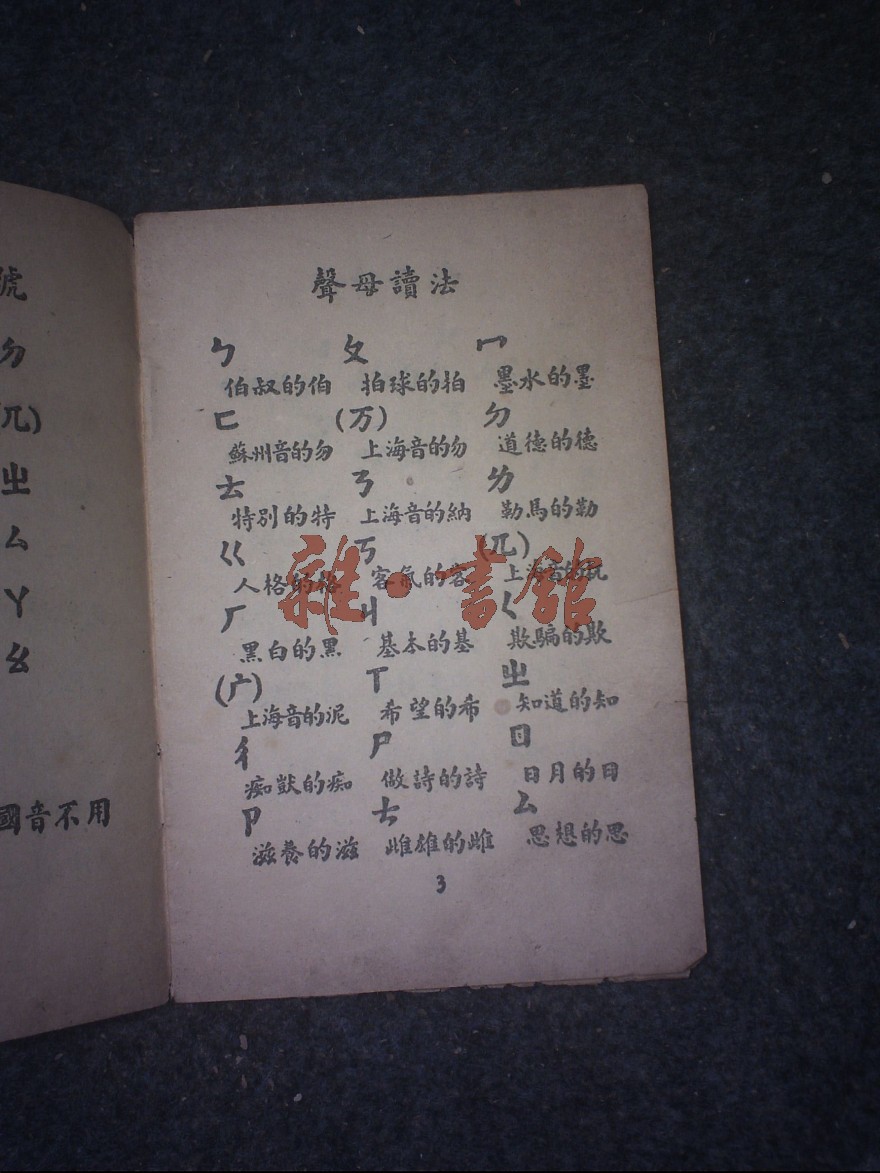 號
ㄅ
兀)
ㄓ
ㄙ
ㄚ
ㄠ
國音不用
聲母讀法
ㄅ ㄆ ㄇ
伯叔的伯 拍球的拍 墨水的墨
ㄈ (万) ㄉ
蘇州音的勿 上海音的勿 道德的德
ㄊ ㄋ ㄌ
特別的特 上海音的納 勒馬的勒
ㄍ ㄎ (兀)
人格的格 客氣的客 上海音的
ㄏ ㄐ ㄑ
黑白的黑 基本的基 欺騙的欺
(广) ㄒ ㄓ
上海音的泥 希望的希 知道的知
ㄔ ㄕ ㄖ
痴獃的痴 做詩的詩 日月的日
ㄗ ㄘ ㄙ
滋養的滋 雌雄的雌 思想的思
3
雜·書館